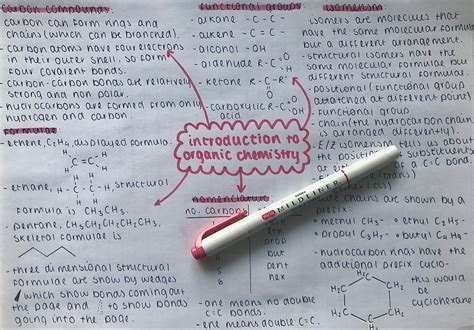 carbon compounds
carbon can form rings and
chains (which can be branched).
- carbon atoms have four electrons
in their outer shell, so form
four covalent bonds.
- carbon-carbon bonds are relatively
strong and non polar.
- hydrocarbons are formed from only
hydrogen and carbon.
formulae
- ethene, C₂H₄, displayed formula:
H H
C=C
H H
- ethane, H-C-C-H, structural
H H
H H
formula is CH₃CH₃.
- pentane, CH₃CH₂CH₂CH₂CH₃
skeletal formulae is
- three dimensional structural
formulae are show by wedges
which show bonds coming out
the page and to show bonds
going into the page.
functional groups
- alkane -C-C-
- alkene -C=C-
- alcohol -OH
- aldehyde R-C=O
H
- ketone R-C-R'
O
- carboxylic R-C=O
acid OH
introduction to
organic chemistry
nomenclature
no. carbons
eth
prop
but
5 pent
6 hex
- ane means no double
C=C bonds.
- ene means double C=C.
isomerism
isomers are molecules that
have the same molecular formula
but a different arrangement.
- structural isomers have the
same molecular formulae but
different structural formulae
- positional (functional group
attatched at different point)
- functional group
- chain (the hydrocarbon chain
is arranged differently).
- E/Z isomerism tells us about
the positioning of
substituents
of a C=C bond
(trans)
chains are shown by a
prefix
- methyl CH₃-
- ethyl C₂H₅-
- propyl C₃H₇-
- hydrocarbon rings have the
additional prefix cyclo-
this would
be
cyclohexane
H₂
C
H₂C CH₂
H₂C CH₂
C
H₂
MILDLINER